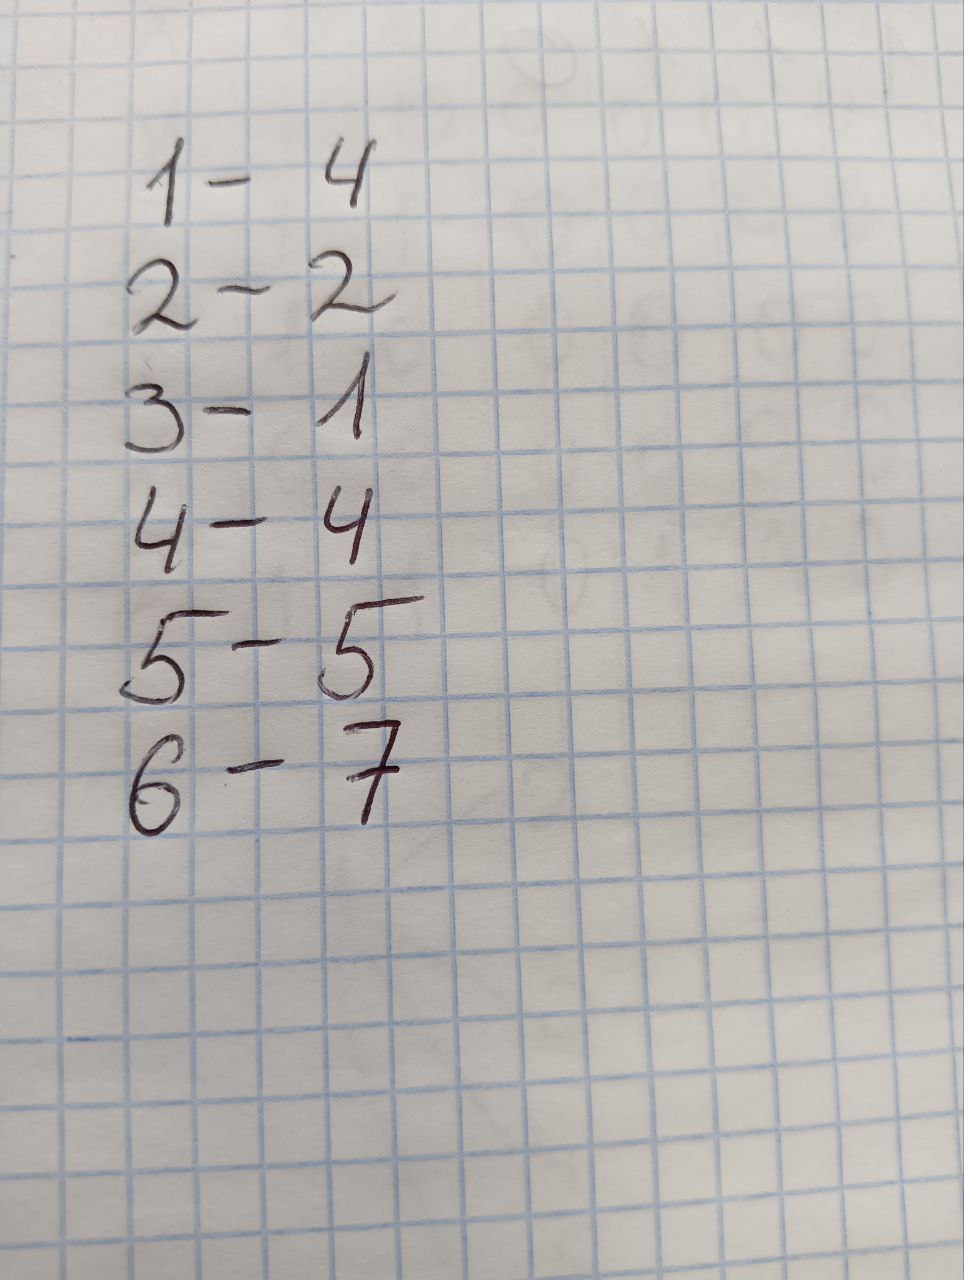 1 - 4
2 - 2
3 - 1
4 - 4
5 - 5
6 - 7